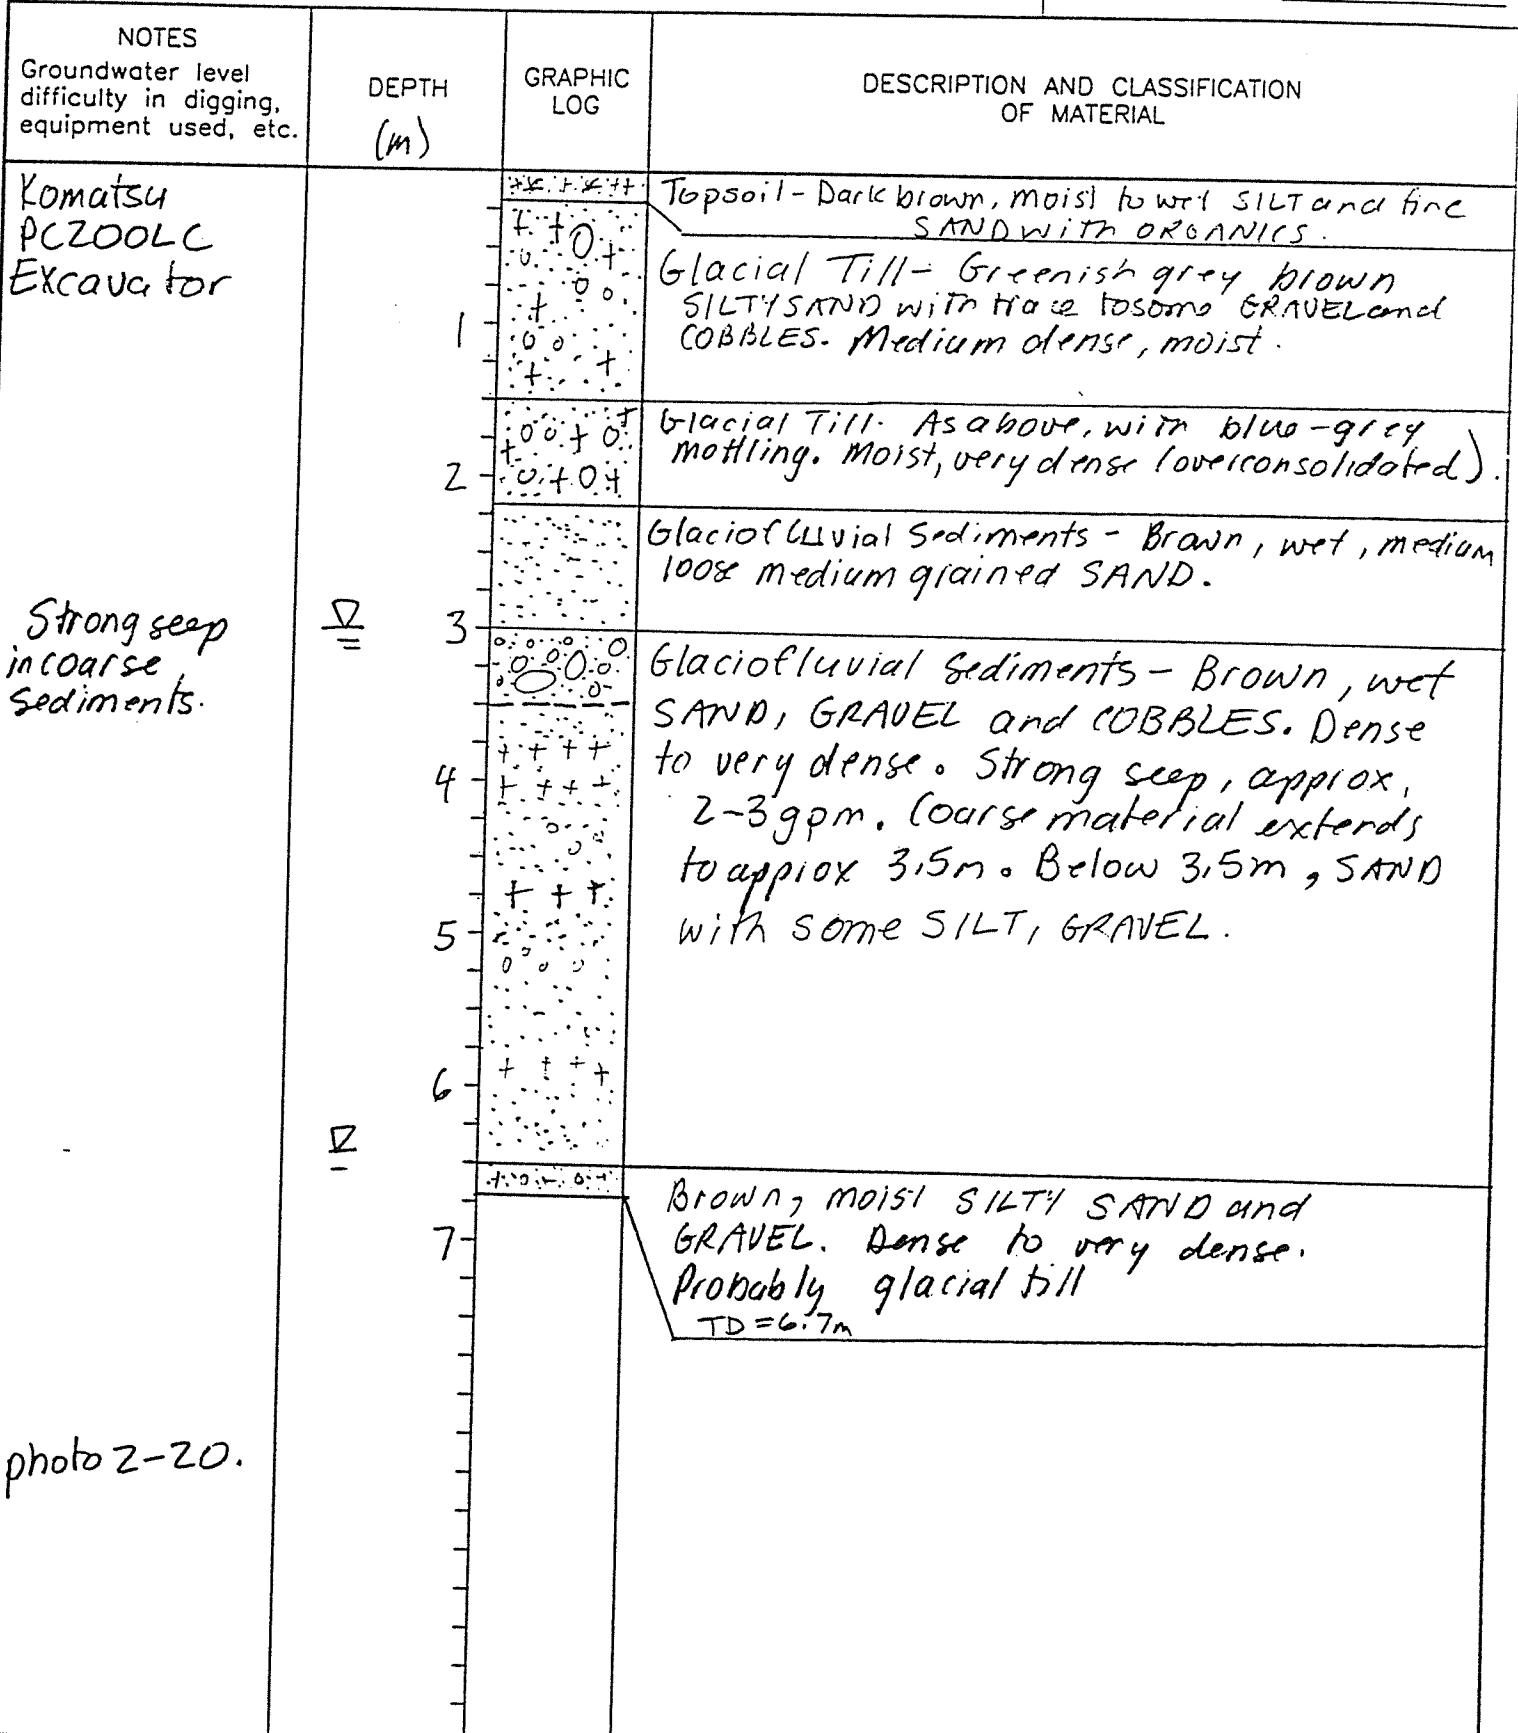 NOTES
Groundwater level
difficulty in digging,
equipment used, etc.
DEPTH
(m)
GRAPHIC
LOG
DESCRIPTION AND CLASSIFICATION
OF MATERIAL
Komatsu
PC200LC
Excavator
Topsoil - Dark brown, moist to wet SILT and fine
SAND with ORGANICS.
Glacial Till - Greenish grey brown
SILTY SAND with trace to some GRAVEL and
COBBLES. Medium dense, moist.
1
Glacial Till. As above, with blue-grey
mottling. Moist, very dense (overconsolidated).
2
Glaciofluvial Sediments - Brown, wet, medium
loose medium grained SAND.
Strong seep
in coarse
sediments.
3
Glaciofluvial Sediments - Brown, wet
SAND, GRAVEL and COBBLES. Dense
to very dense. Strong seep, approx.
2-3gpm. Coarse material extends
to approx 3.5m. Below 3.5m, SAND
with some SILT, GRAVEL.
4
5
6
Brown, moist SILTY SAND and
GRAVEL. Dense to very dense.
Probably glacial till
TD = 6.7m
7
photo 2-20.